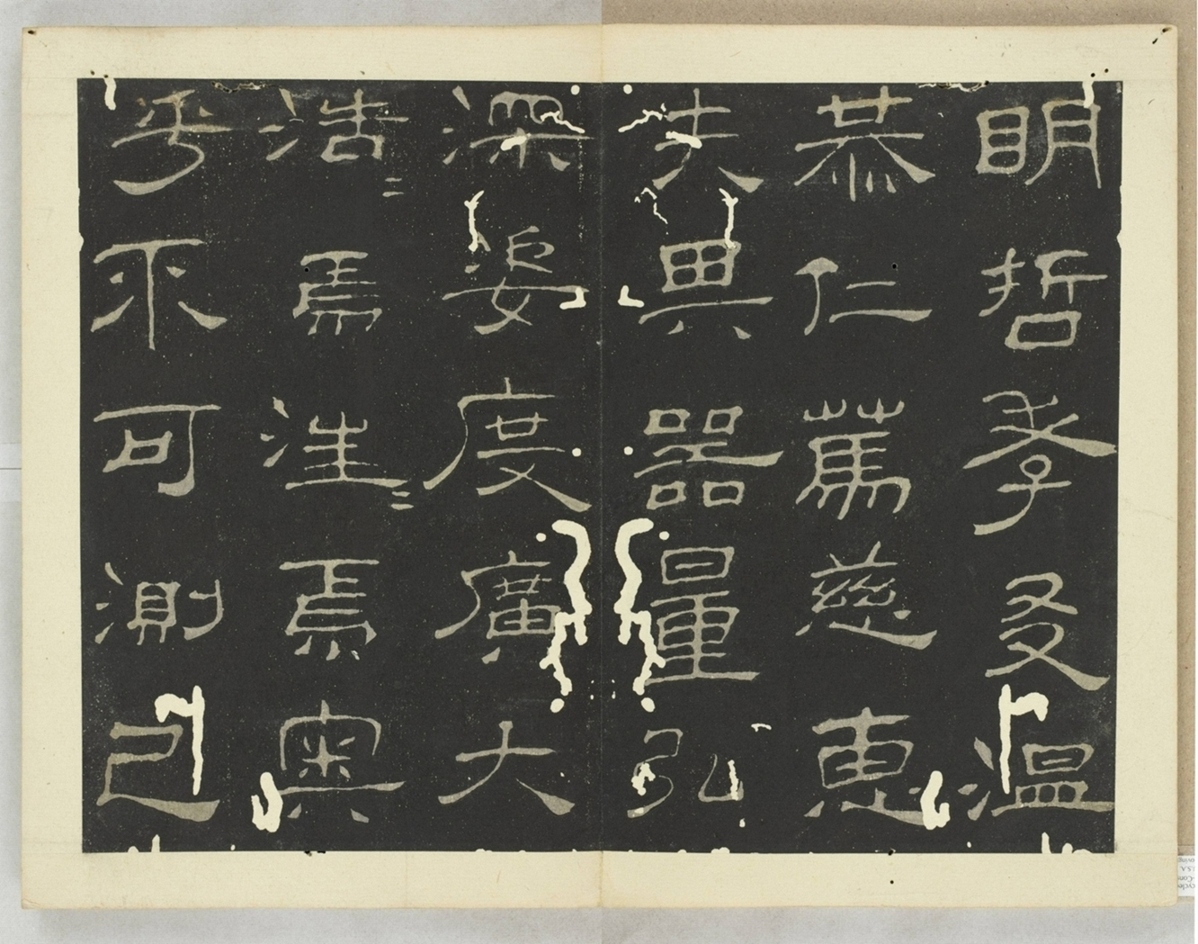 明哲孝友溫
恭仁篤慈惠
夫其器量弘
深姿度廣大
浩〻焉汪〻焉奧
乎不可測已